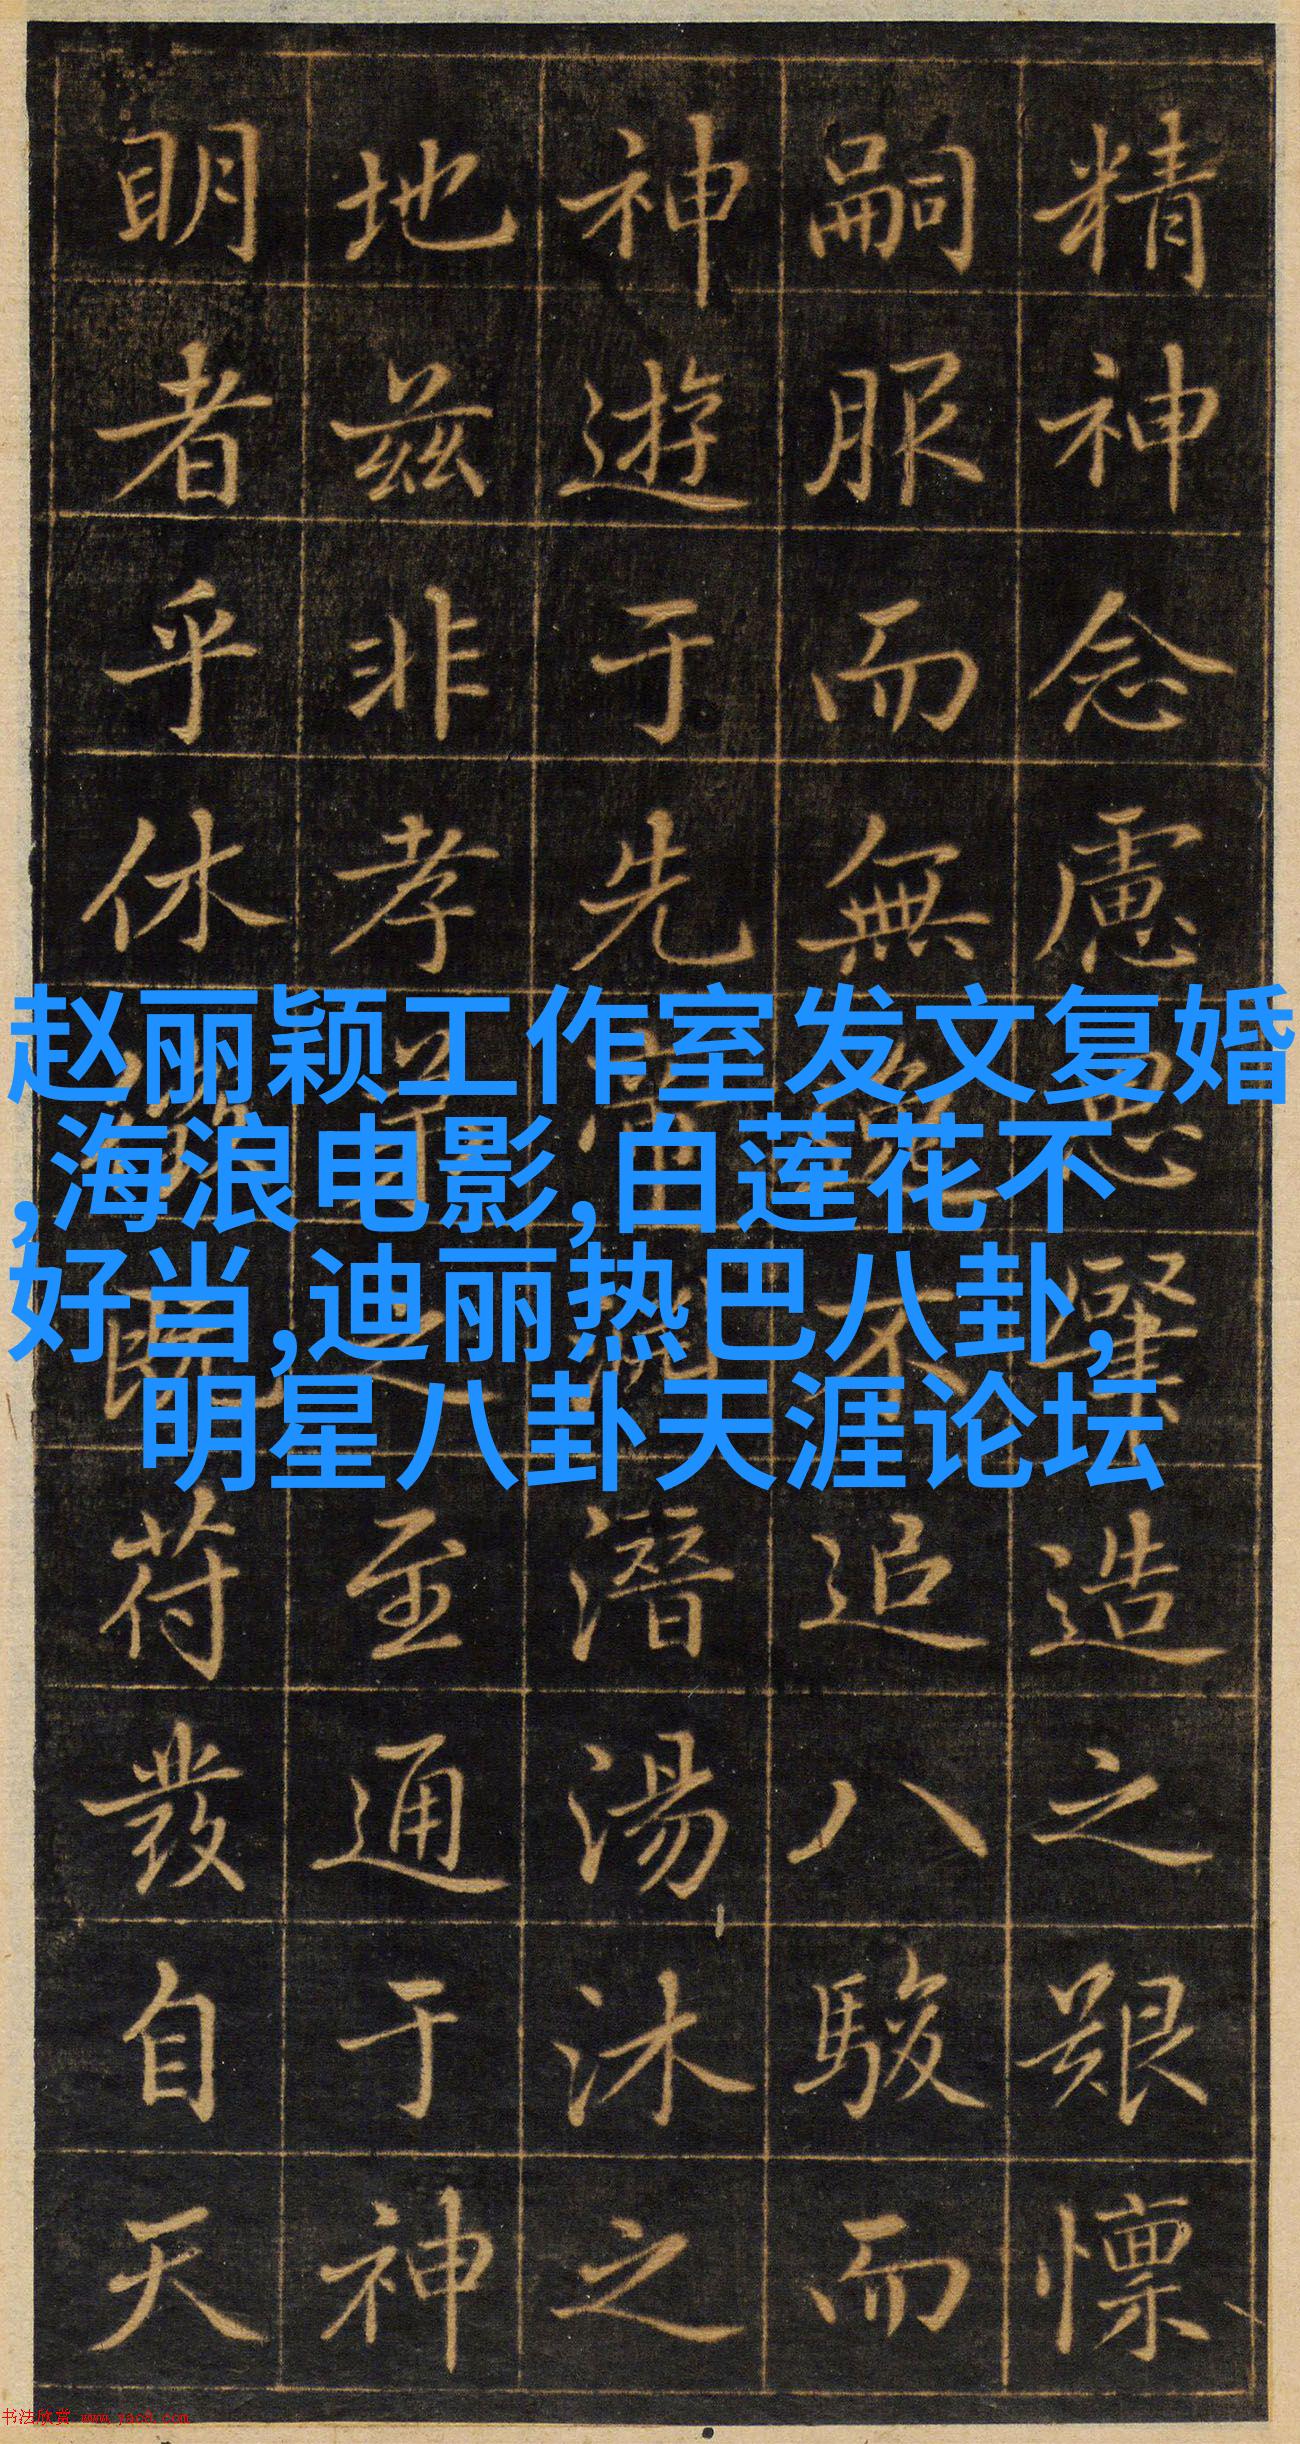 赵丽颖工作室发文复婚
,海浪电影,白莲花不
好当,迪丽热巴八卦,
明星八卦天涯论坛
精神念慮造之艱懍
嗣服而無不追八駿而
神遊于先潛湯沐之
地茲非孝之至通于神
明者乎休既苻發自天
书法欣赏 www.yac8.com